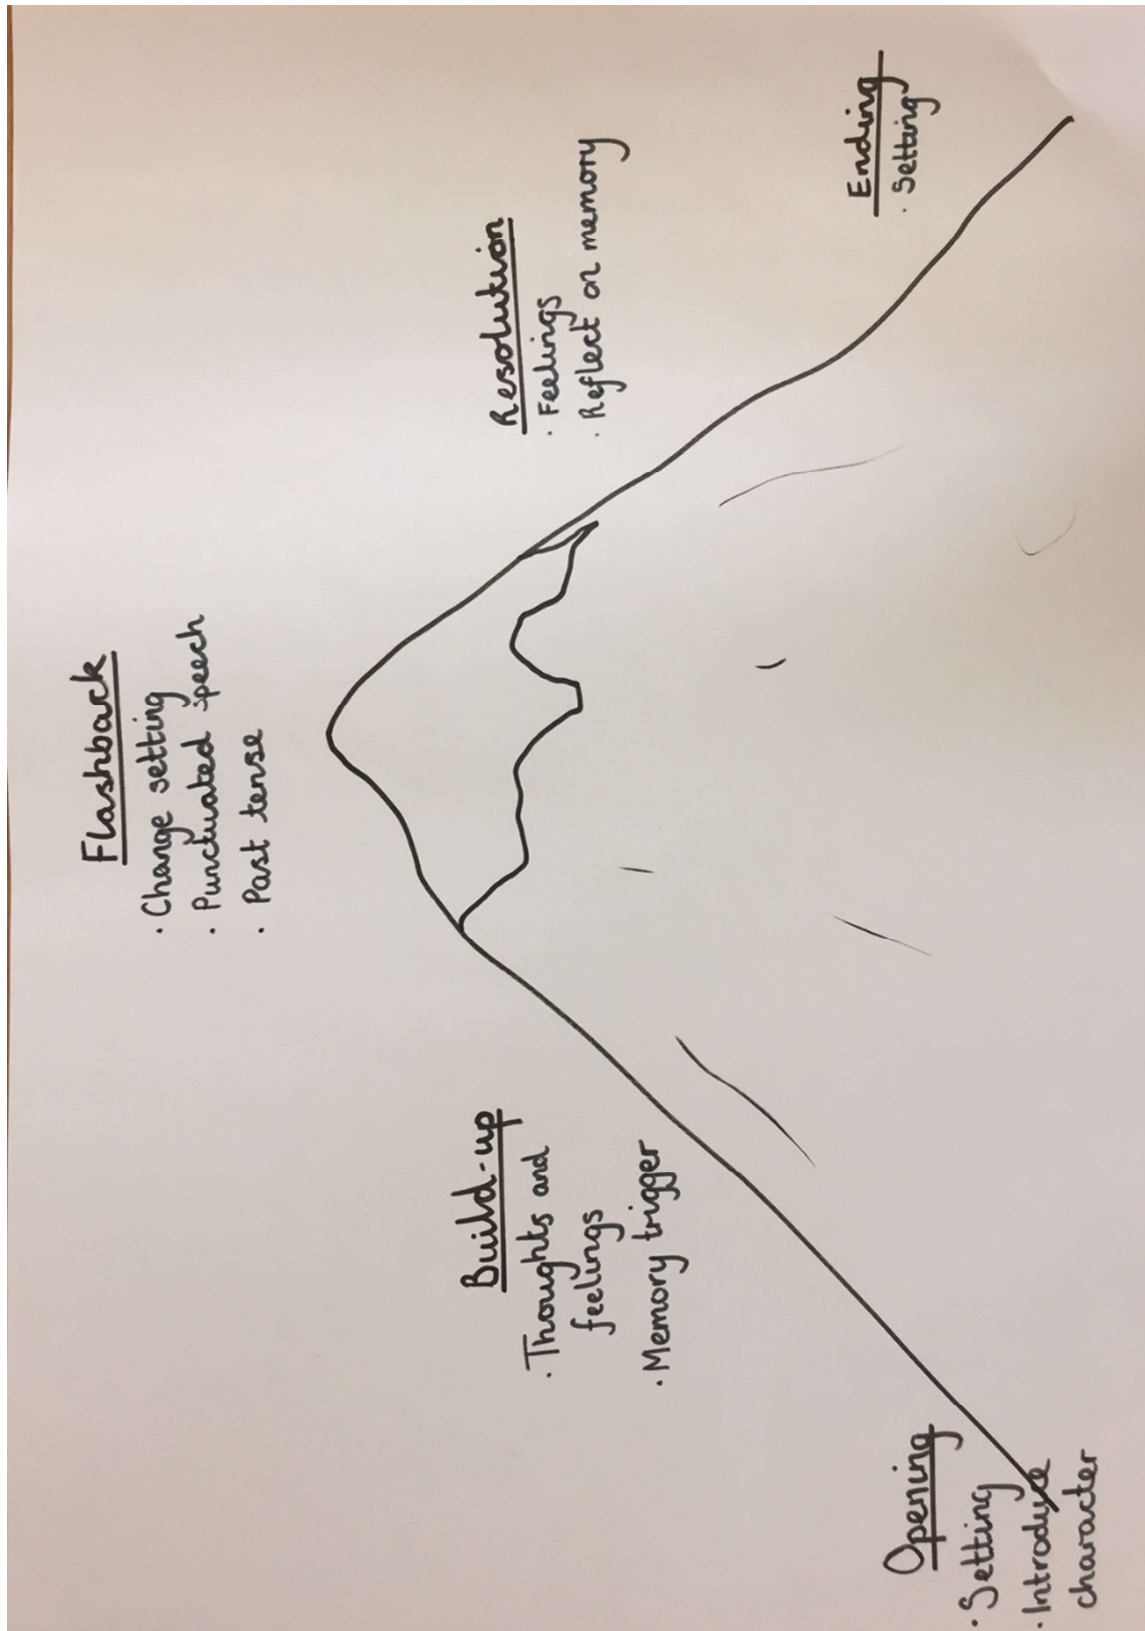 Opening
· Setting
· Introduce
character
Build-up
· Thoughts and
feelings
· Memory trigger
Flashback
· Change setting
· Punctuated speech
· Past tense
Resolution
· Feelings
· Reflect on memory
Ending
· Setting